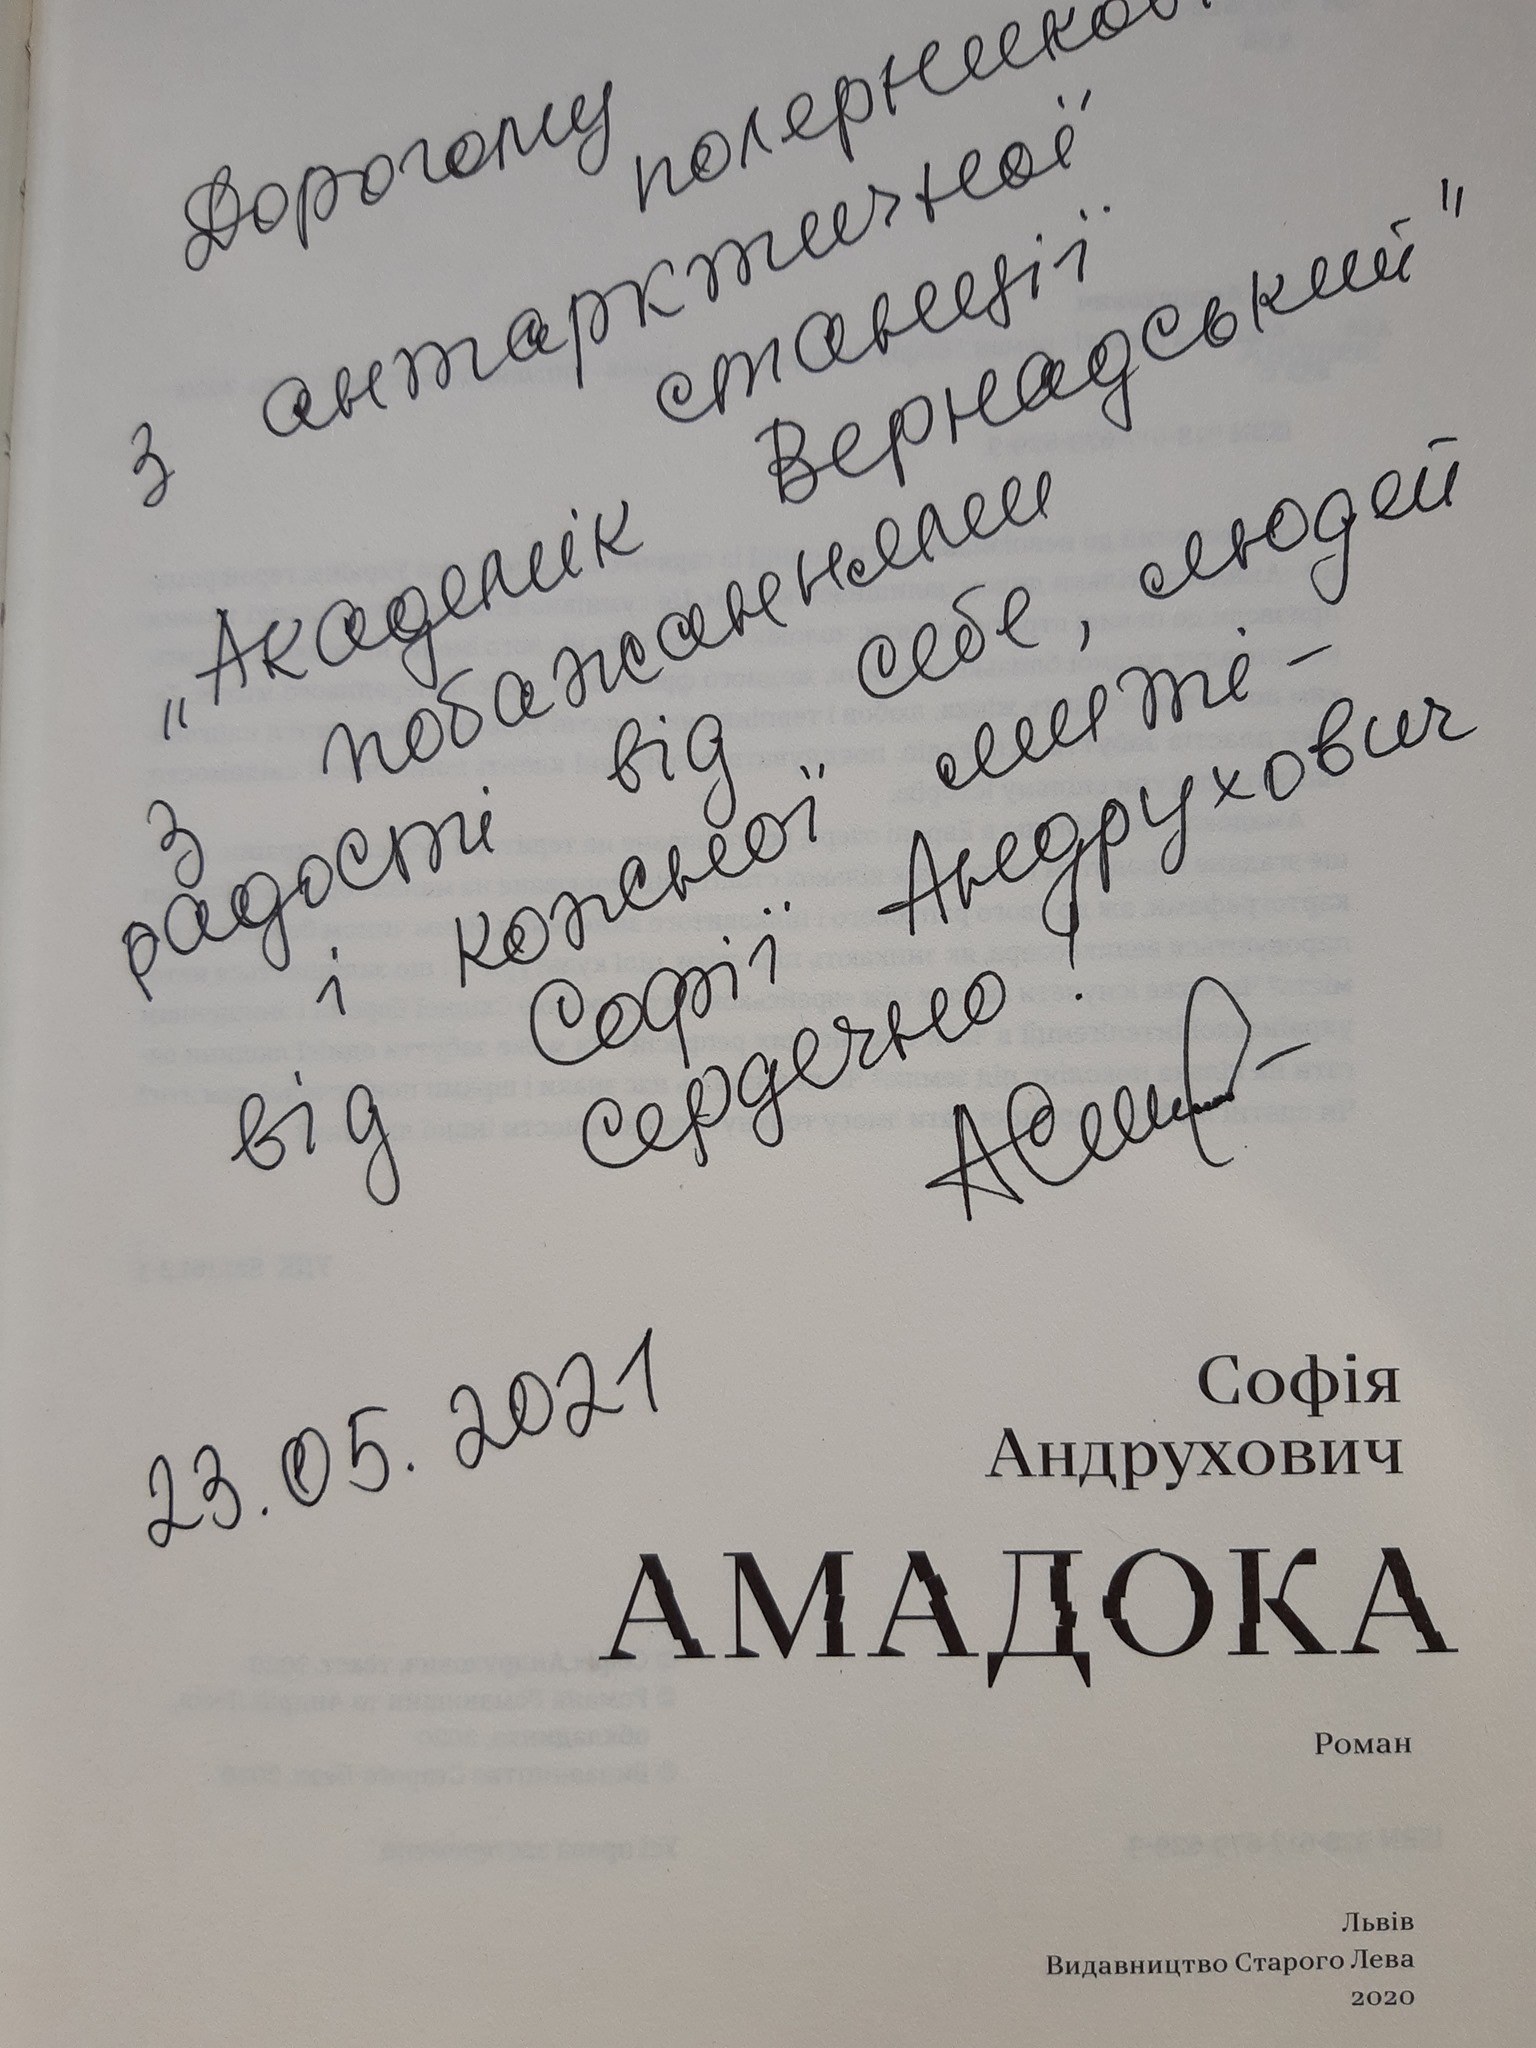 Дорогому полярникові
з антарктичної
станції
"Академік Вернадський"
з побажаннями
радості від себе, людей
і кожної миті –
від Софії Андрухович
Сердечно!
23.05.2021
Софія
Андрухович
АМАДОКА
Роман
Львів
Видавництво Старого Лева
2020